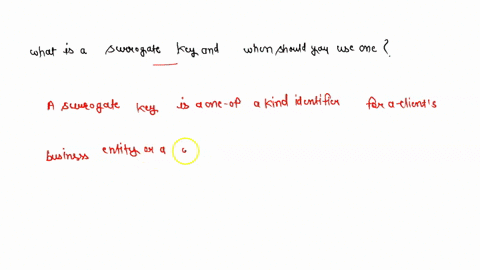 what is a surrogate key and when should you use one?
A surrogate key is a one-of a kind identifier for a-client's
business entity or a